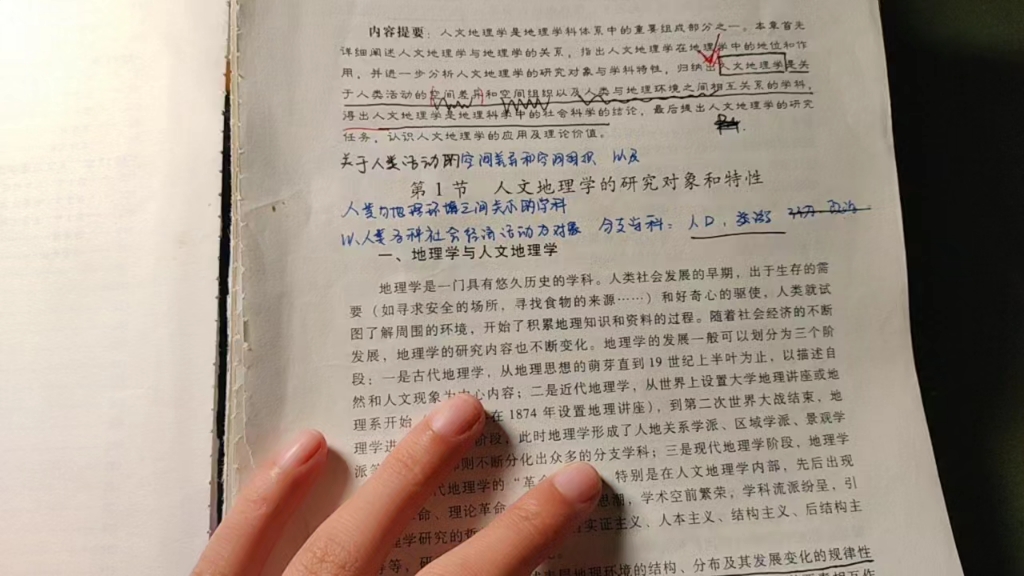 内容提要：人文地理学是地理学科体系中的重要组成部分之一。本章首先
详细阐述人文地理学与地理学的关系，指出人文地理学在地理学中的地位和作
用，并进一步分析人文地理学的研究对象与学科特性，归纳出人文地理学是关
于人类活动的空间差异和空间组织以及人类与地理环境之间相互关系的学科，
得出人文地理学是地理科学中的社会科学的结论，最后提出人文地理学的研究
任务，认识人文地理学的应用及理论价值。
关于人类活动的空间差异和空间组织 以及
第1节 人文地理学的研究对象和特性
人类与地理环境之间关系的学科
以人类各种社会经济活动为对象 分支学科：人口、旅游
一、地理学与人文地理学
地理学是一门具有悠久历史的学科。人类社会发展的早期，出于生存的需
要（如寻求安全的场所，寻找食物的来源……）和好奇心的驱使，人类就试
图了解周围的环境，开始了积累地理知识和资料的过程。随着社会经济的不断
发展，地理学的研究内容也不断变化。地理学的发展一般可以划分为三个阶
段：一是古代地理学，从地理思想的萌芽直到19世纪上半叶为止，以描述自
然和人文现象为中心内容；二是近代地理学，从世界上设置大学地理讲座或地
理系开始 在1874年设置地理讲座），到第二次世界大战结束，地
理学进 阶段，此时地理学形成了人地关系学派、区域学派、景观学
派等 则不断分化出众多的分支学科；三是现代地理学阶段，地理学
代地理学的“革命 特别是在人文地理学内部，先后出现
革命、理论革命 思潮，学术空前繁荣，学科流派纷呈，引
理学研究的 实证主义、人本主义、结构主义、后结构主
等等，研
地理环境的结构、分布及其发展变化的规律性